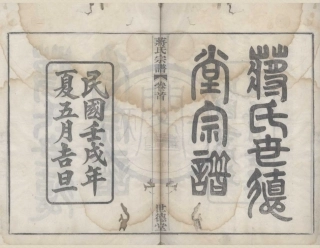 蔣氏世德
堂宗譜
蔣氏宗譜 卷首
世德堂
民國壬戌年
夏五月吉旦